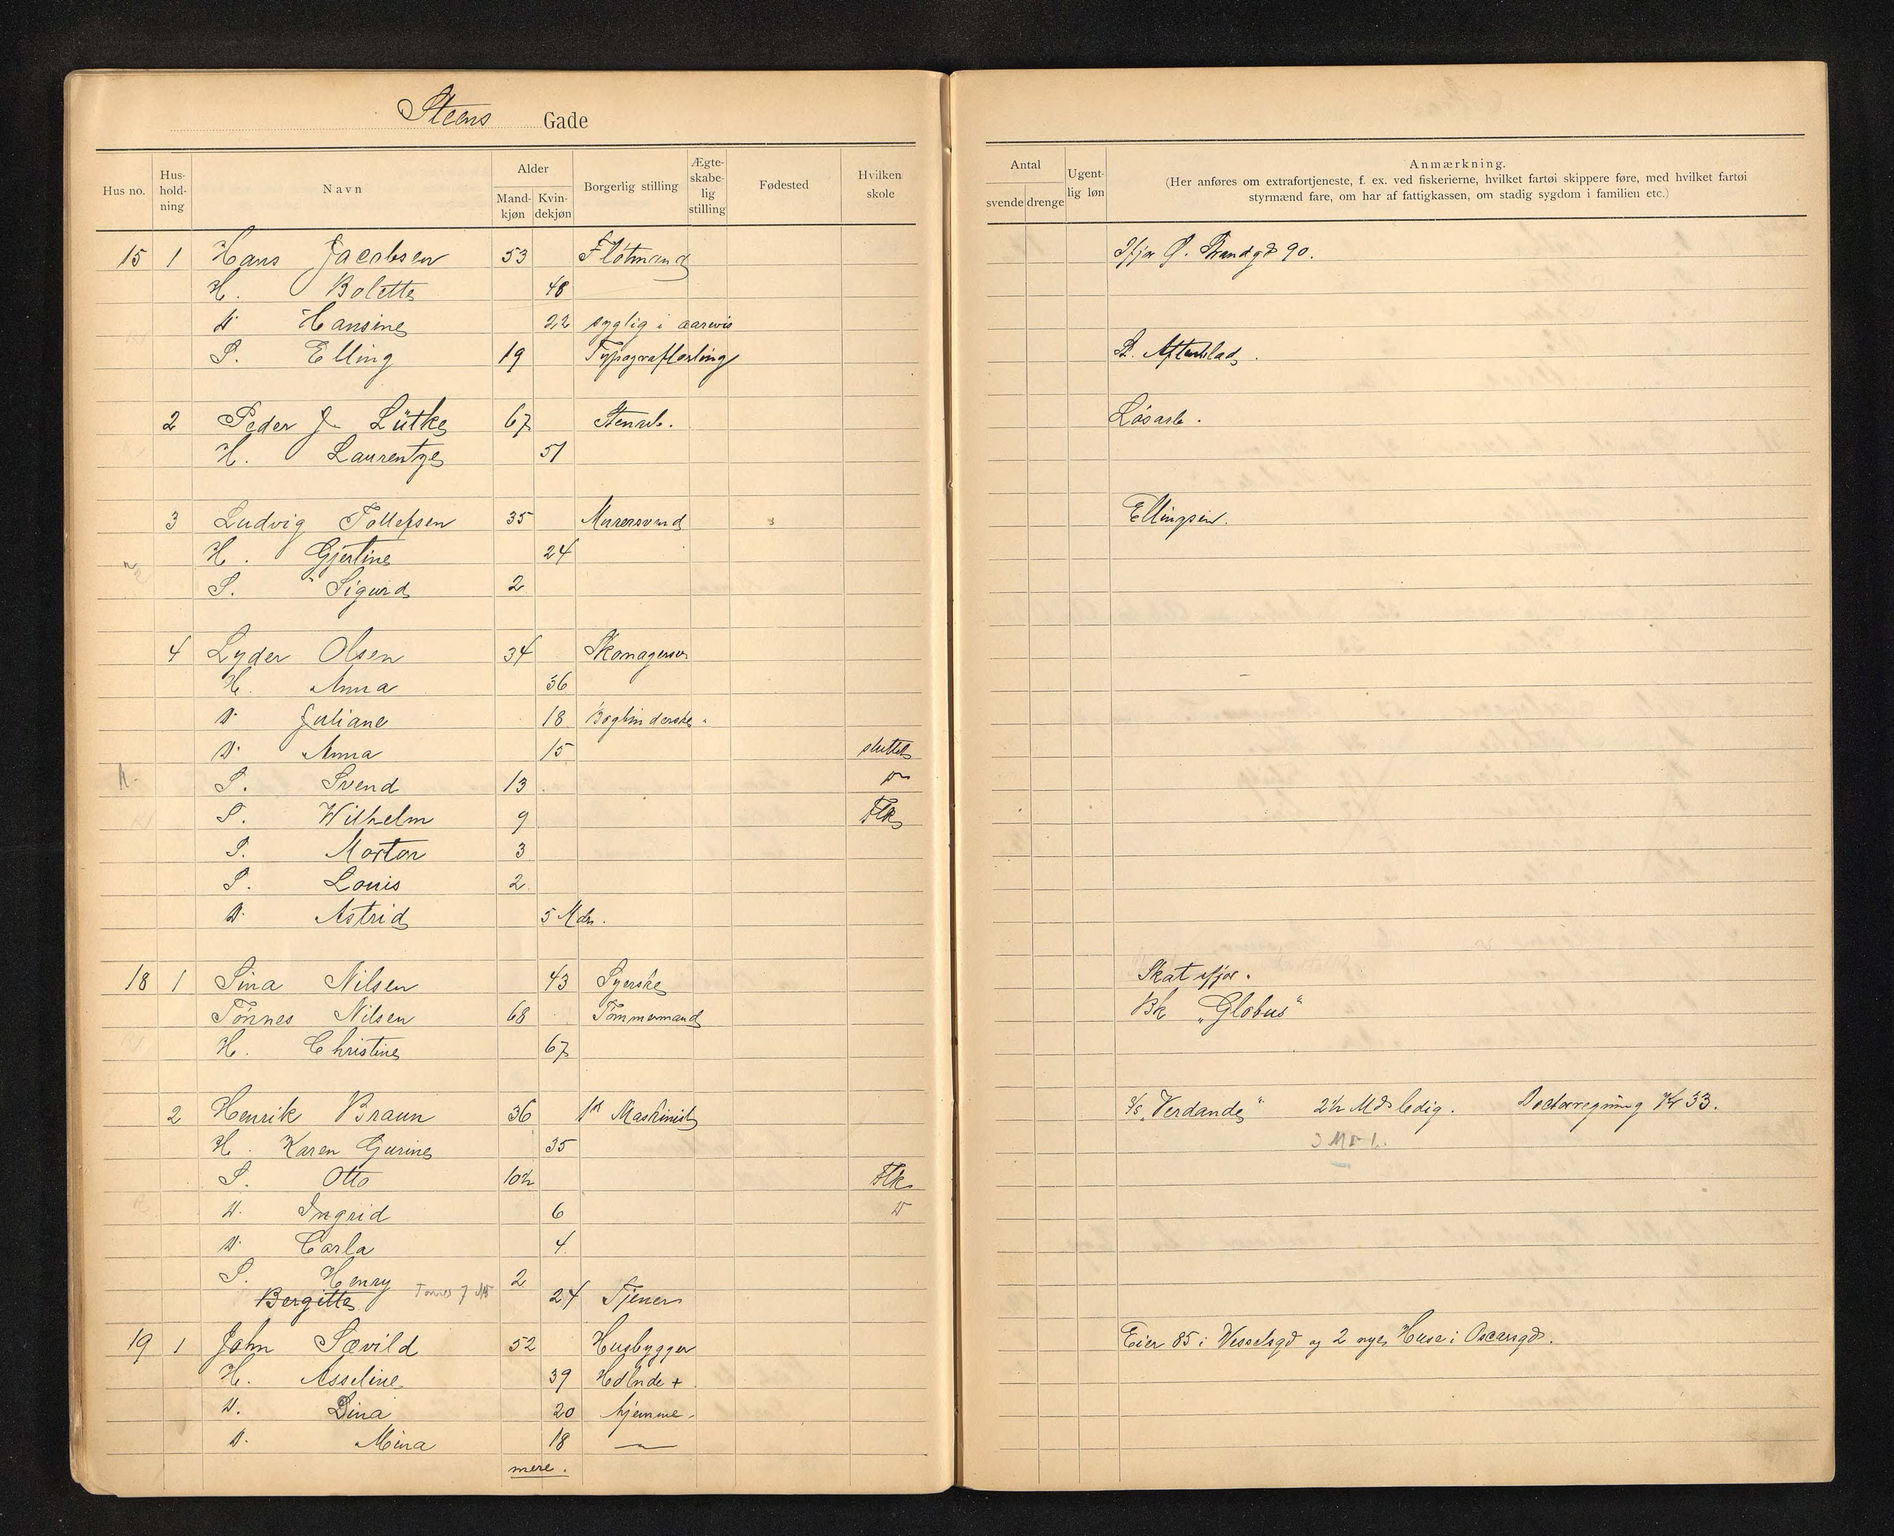 Steens Gade
Hus no. Hus-hold-ning Navn Alder Mand-kjøn Kvin-dekjøn Borgerlig stilling Ægte-skabe-lig stilling Fødested Hvilken skole
Antal svende drenge Ugent-lig løn Anmærkning.
(Her anføres om extrafortjeneste, f. ex. ved fiskerierne, hvilket fartøi skippere føre, med hvilket fartøi
styrmænd fare, om har af fattigkassen, om stadig sygdom i familien etc.)
15 1 Hans Jacobsen 53 Fløtmand Ifjor Ø. Strandgd 90.
H. Bolette 48
D Hansine 22 syglig i aarevis
S. Elling 19 Typograflærling St. Aftenblad.
2 Peder J Lütke 67 Stenarb. Løsarb.
H. Laurentze 51
3 Ludvig Tollefsen 35 Murersvend Ellingsen.
H. Gjertine 24
S. Sigurd 2
4 Lyder Olsen 34 Skomagersv
H. Anna 36
D. Juliane 18 Bogbinderske.
D. Anna 15 sluttet
S. Svend 13 D
S. Wilhelm 9 Flk
S. Morton 3
S. Louis 2
D. Astrid 5 Mdr.
18 1 Sina Nilsen 43 Syerske Skat ifjor.
Tönnes Nilsen 68 Tømmermand Bk "Globus"
H. Christine 67
2 Henrik Braun 36 1st Maskinist S/S "Verdande" 2½ Md ledig. Doctorregning Kr 33.
H. Karen Gurine 35
S. Otto 10½ Flk
D. Ingrid 6 D
D. Carla 4
S. Henry 2
Bergitte Tønnes 7 24 Tjener
19 1 John Sævild 52 Husbygger Eier 85 i Vesselsgd og 2 nye Huse i Oscarsgd.
H. Asseline 39 Hdlnde +
D. Lina 20 hjemme.
D. Mina 18 —
mere.